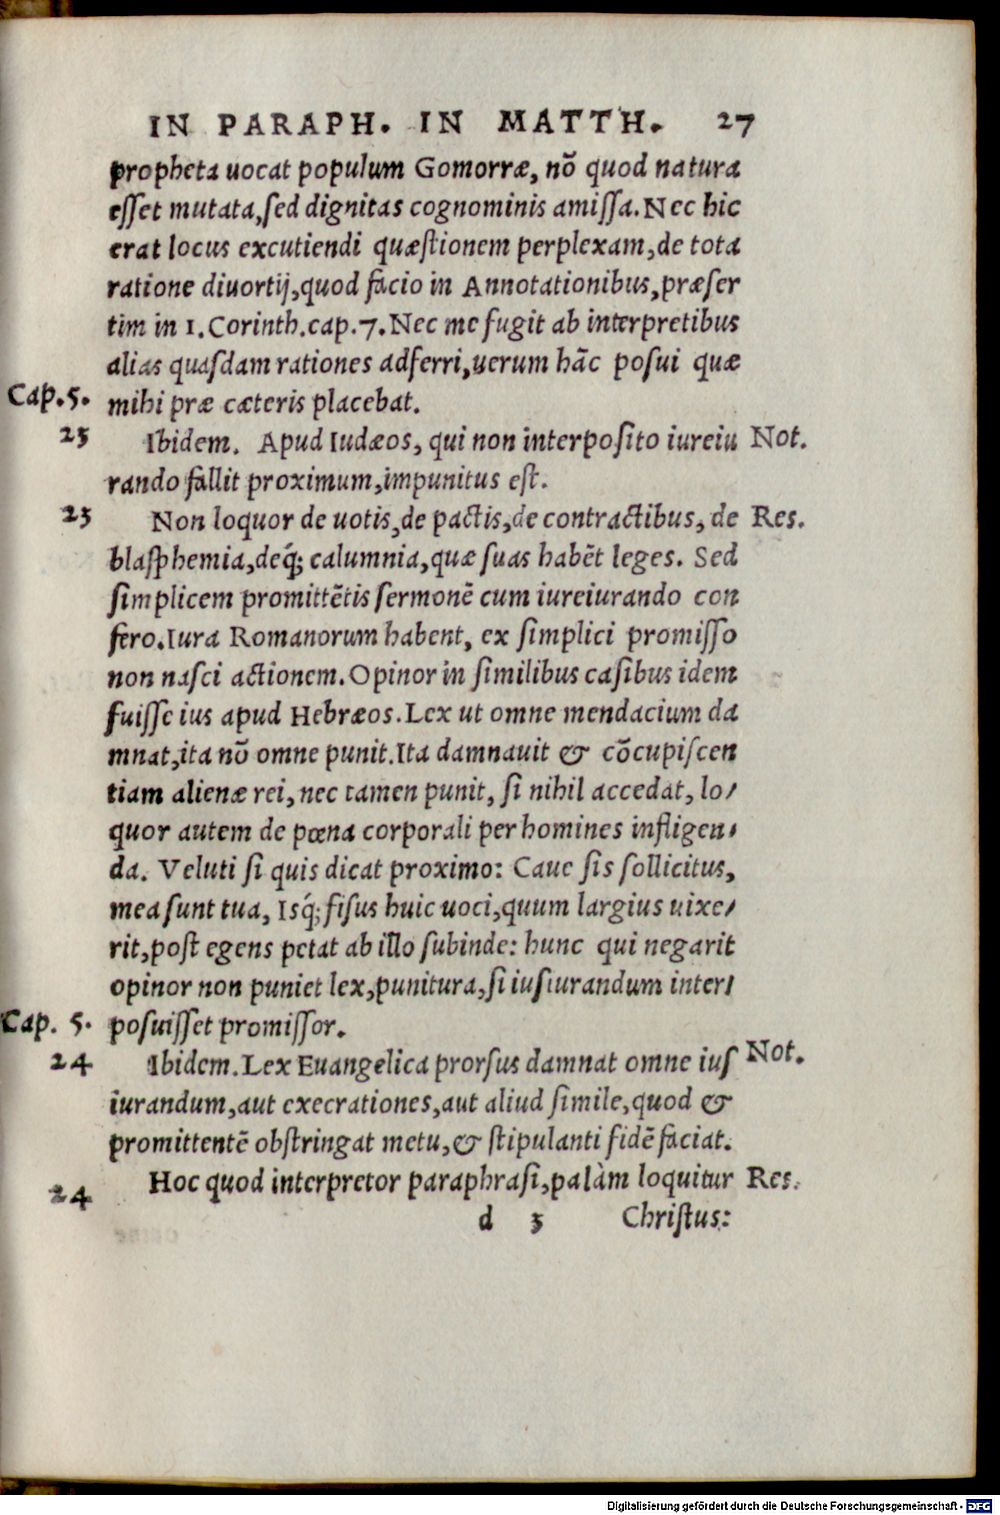 IN PARAPH. IN MATTH. 27
propheta uocat populum Gomorræ, nõ quod natura
eſſet mutata,ſed dignitas cognominis amiſſa.Nec hic
erat locus excutiendi quæſtionem perplexam,de tota
ratione diuortij,quod facio in Annotationibus,præſer
tim in 1.Corinth.cap.7.Nec me fugit ab interpretibus
alias quaſdam rationes adferri,uerum hãc poſui quæ
Cap.5. mihi præ cæteris placebat.
23 Ibidem. Apud Iudæos, qui non interpoſito iureiu Not.
rando fallit proximum,impunitus eſt.
23 Non loquor de uotis,de pactis,de contractibus, de Res.
blaſphemia,deq́; calumnia,quæ ſuas habẽt leges. Sed
ſimplicem promittẽtis ſermonẽ cum iureiurando con
fero.Iura Romanorum habent, ex ſimplici promiſſo
non naſci actionem.Opinor in ſimilibus caſibus idem
fuiſſe ius apud Hebræos.Lex ut omne mendacium da
mnat,ita nõ omne punit.Ita damnauit & cõcupiſcen
tiam alienæ rei, nec tamen punit, ſi nihil accedat, lo/
quor autem de pœna corporali per homines infligen/
da. Veluti ſi quis dicat proximo: Caue ſis ſollicitus,
mea ſunt tua, Isq́; fiſus huic uoci,quum largius uixe/
rit,poſt egens petat ab illo ſubinde: hunc qui negarit
opinor non puniet lex,punitura,ſi iuſiurandum inter/
Cap. 5. poſuiſſet promiſſor.
24 Ibidem.Lex Euangelica prorſus damnat omne iuſ Not.
iurandum,aut execrationes,aut aliud ſimile,quod &
promittentẽ obſtringat metu,& ſtipulanti fidẽ faciat.
24 Hoc quod interpretor paraphraſi,palàm loquitur Res.
d 3 Chriſtus:
Digitalisierung gefördert durch die Deutsche Forschungsgemeinschaft - DFG